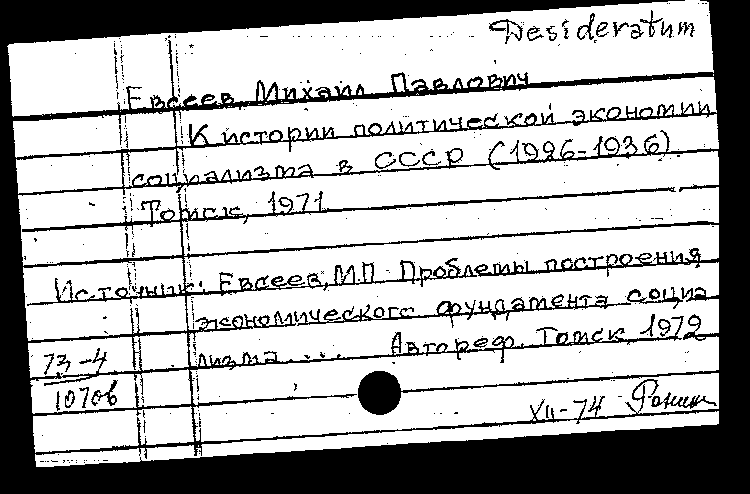 Desideratum
Евсеев, Михаил Павлович
К истории политической экономии
социализма в СССР (1926-1936).
Томск, 1971.
Источник: Евсеев, М.П. Проблемы построения
экономического фундамента социа
лизма .... Автореф. Томск, 1972
73-4
10706
XII-74